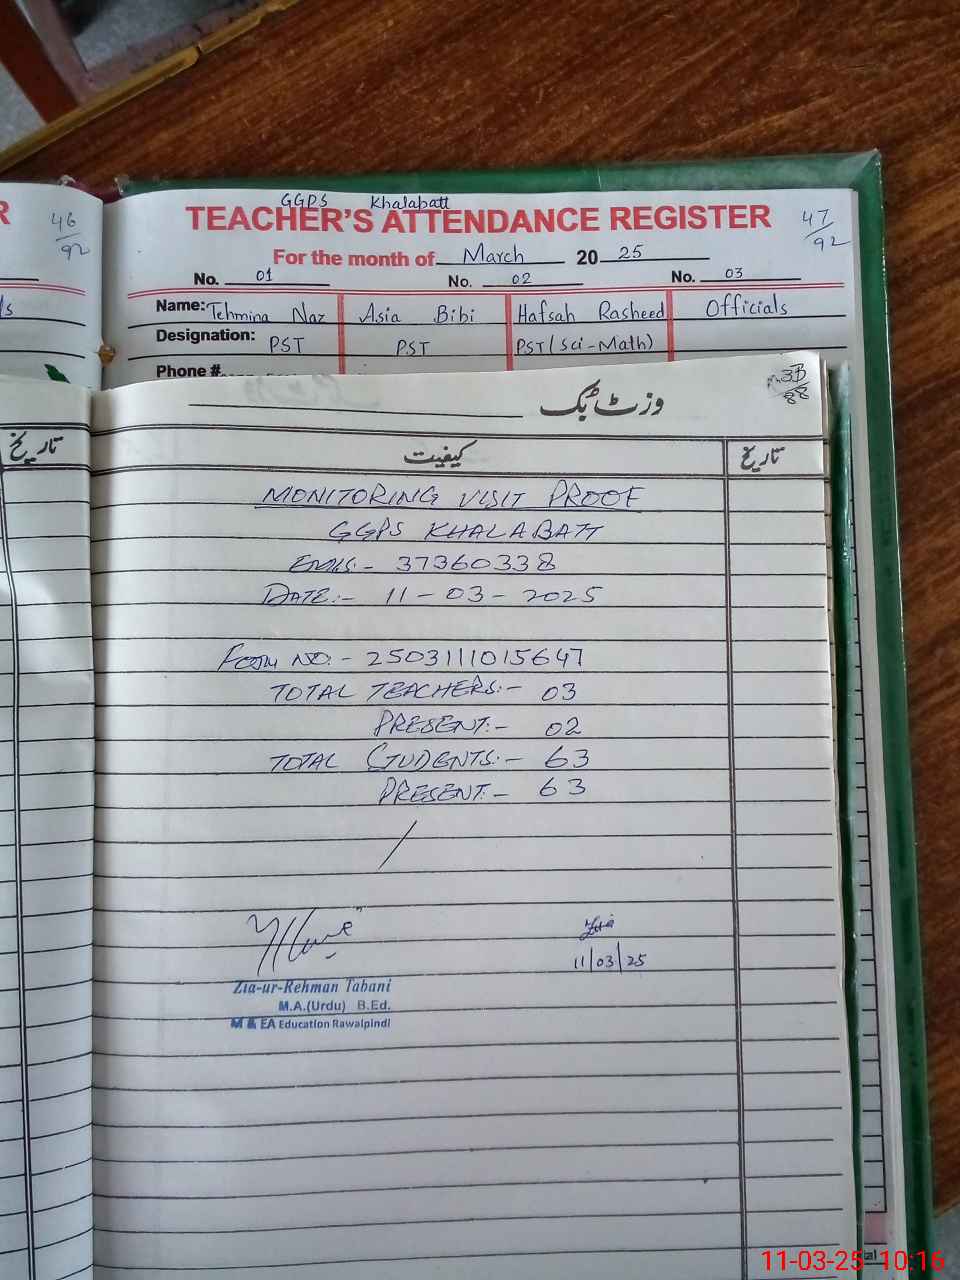 R
46
92
GGPS Khalabatt
TEACHER'S ATTENDANCE REGISTER
47
92
For the month of March 2025
No. 01 No. 02 No. 03
Name: Tehmina Naz Asia Bibi Hafsah Rasheed Officials
Designation: PST PST PST (Sci-Math)
Phone #
وزٹ بک
88
تاریخ
کیفیت
تاریخ
MONITORING VISIT PROOF
GGPS KHALABATT
EMIS:- 37360338
DATE:- 11-03-2025
Form NO.- 2503111015647
TOTAL TEACHERS:- 03
PRESENT:- 02
TOTAL STUDENTS:- 63
PRESENT:- 63
11/03/25
Zia-ur-Rehman Tabani
M.A.(Urdu) B.Ed.
M & EA Education Rawalpindi
tal
11-03-25 10:16